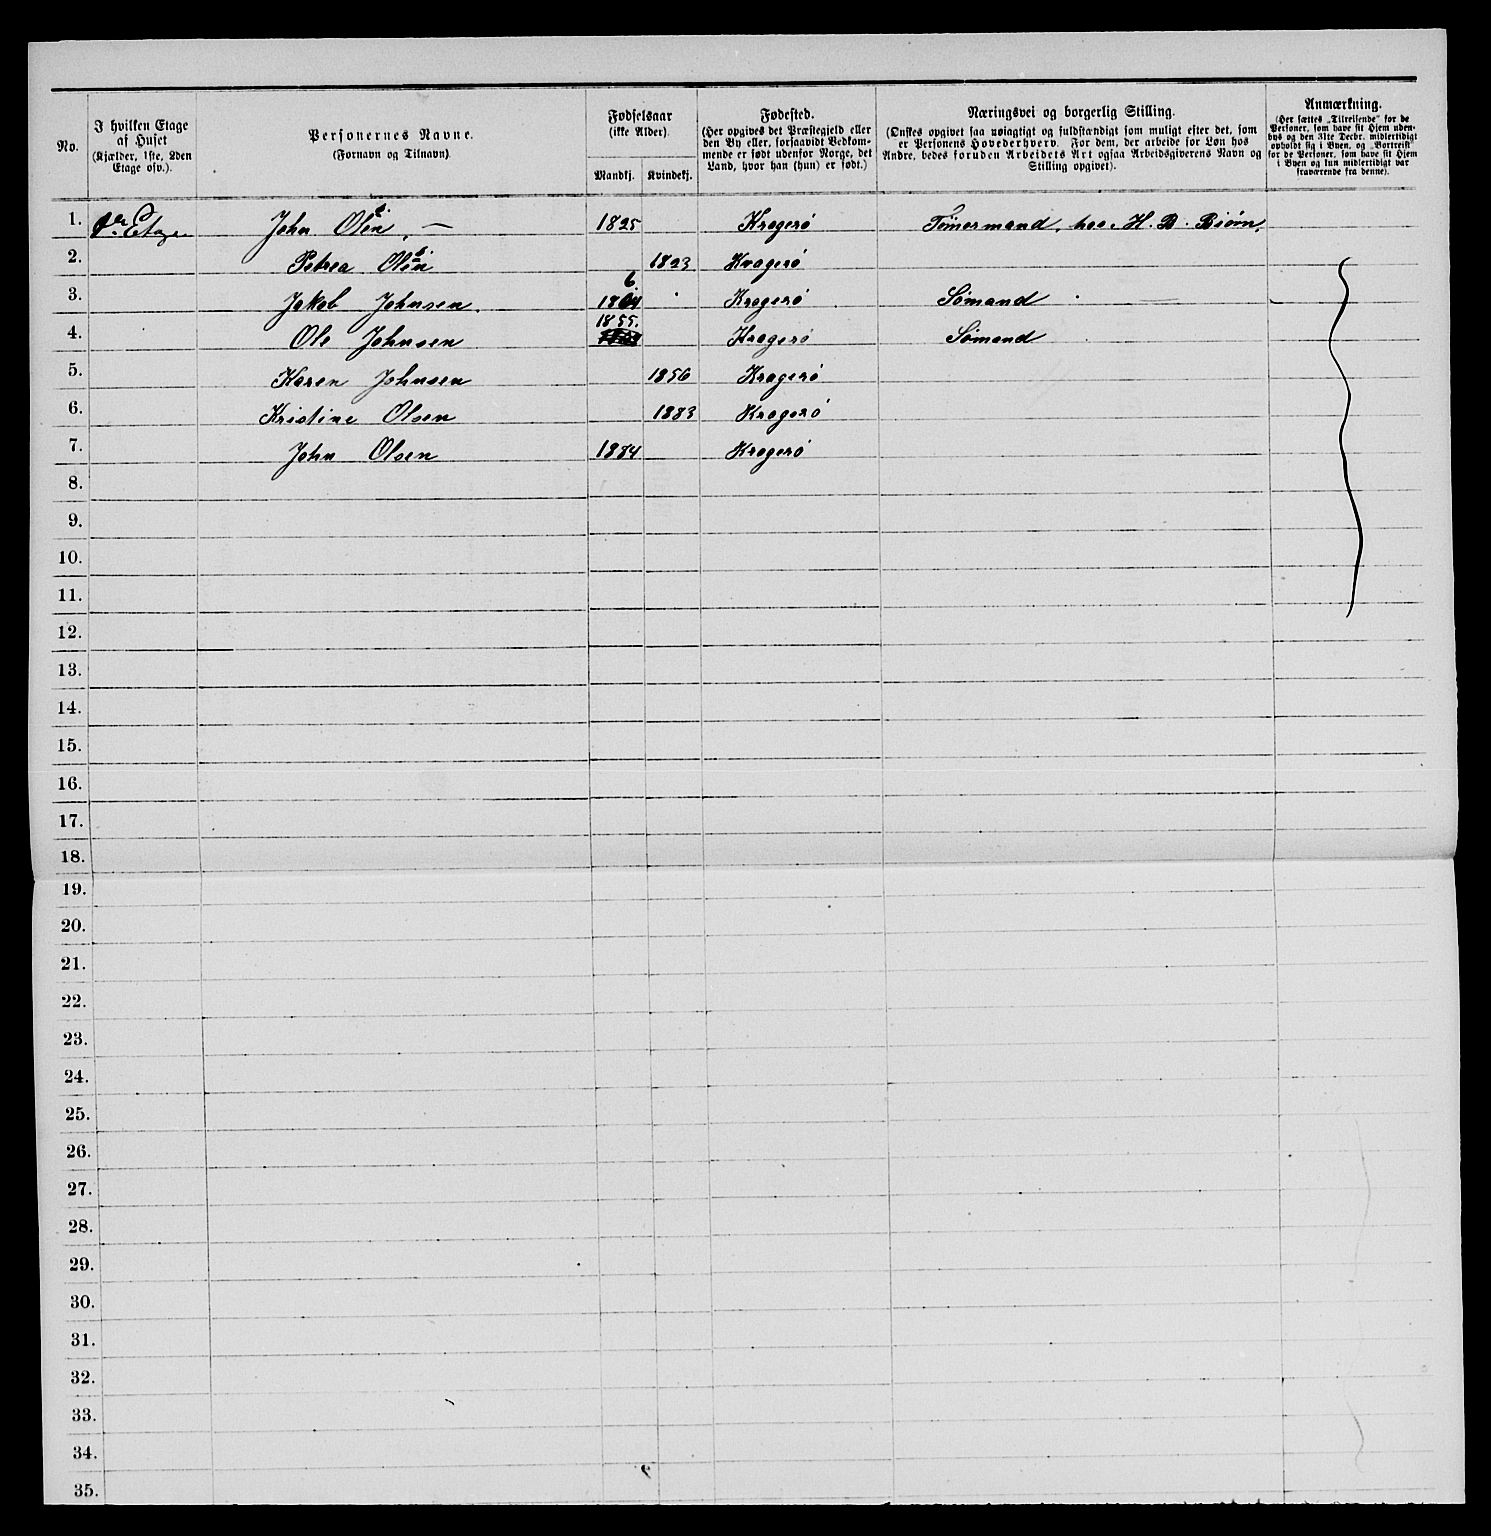 No.
I hvilken Etage af Huset (Kjælder, 1ste, 2den Etage osv.).
Personernes Navne.
(Fornavn og Tilnavn)
Fødselsaar
(ikke Alder).
Mandkj. Kvindekj.
Fødested.
(Her opgives det Præstegjeld eller
den By eller, forsaavidt Vedkom-
mende er født udenfor Norge, det
Land, hvor han (hun) er født.)
Næringsvei og borgerlig Stilling.
(Ønskes opgivet saa nøiagtigt og fuldstændigt som muligt efter det, som
er Personens Hovederhverv. For dem, der arbeide for Løn hos
Andre, bedes foruden Arbeidets Art ogsaa Arbeidsgiverens Navn og
Stilling opgivet).
Anmærkning.
(Her sættes „Tilreisende“ for de
Personer, som have sit Hjem uden-
bys og den 31te Decbr. midlertidigt
opholdt sig i Byen, og „Bortreist“
for de Personer, som have sit Hjem
i Byen og kun midlertidigt var
fraværende fra denne).
1. Etage John Olsen 1825 Kragerø Tømermand, hos H. B. Biørn,
2. Petrea Olsen 1823 Kragerø
3. Jakob Johnsen. 1864 Kragerø Sømand
4. Ole Johnsen 1855. Kragerø Sømand
5. Karen Johnsen 1856 Kragerø
6. Kristine Olsen 1883 Kragerø
7. John Olsen 1884 Kragerø
8.
9.
10.
11.
12.
13.
14.
15.
16.
17.
18.
19.
20.
21.
22.
23.
24.
25.
26.
27.
28.
29.
30.
31.
32.
33.
34.
35.